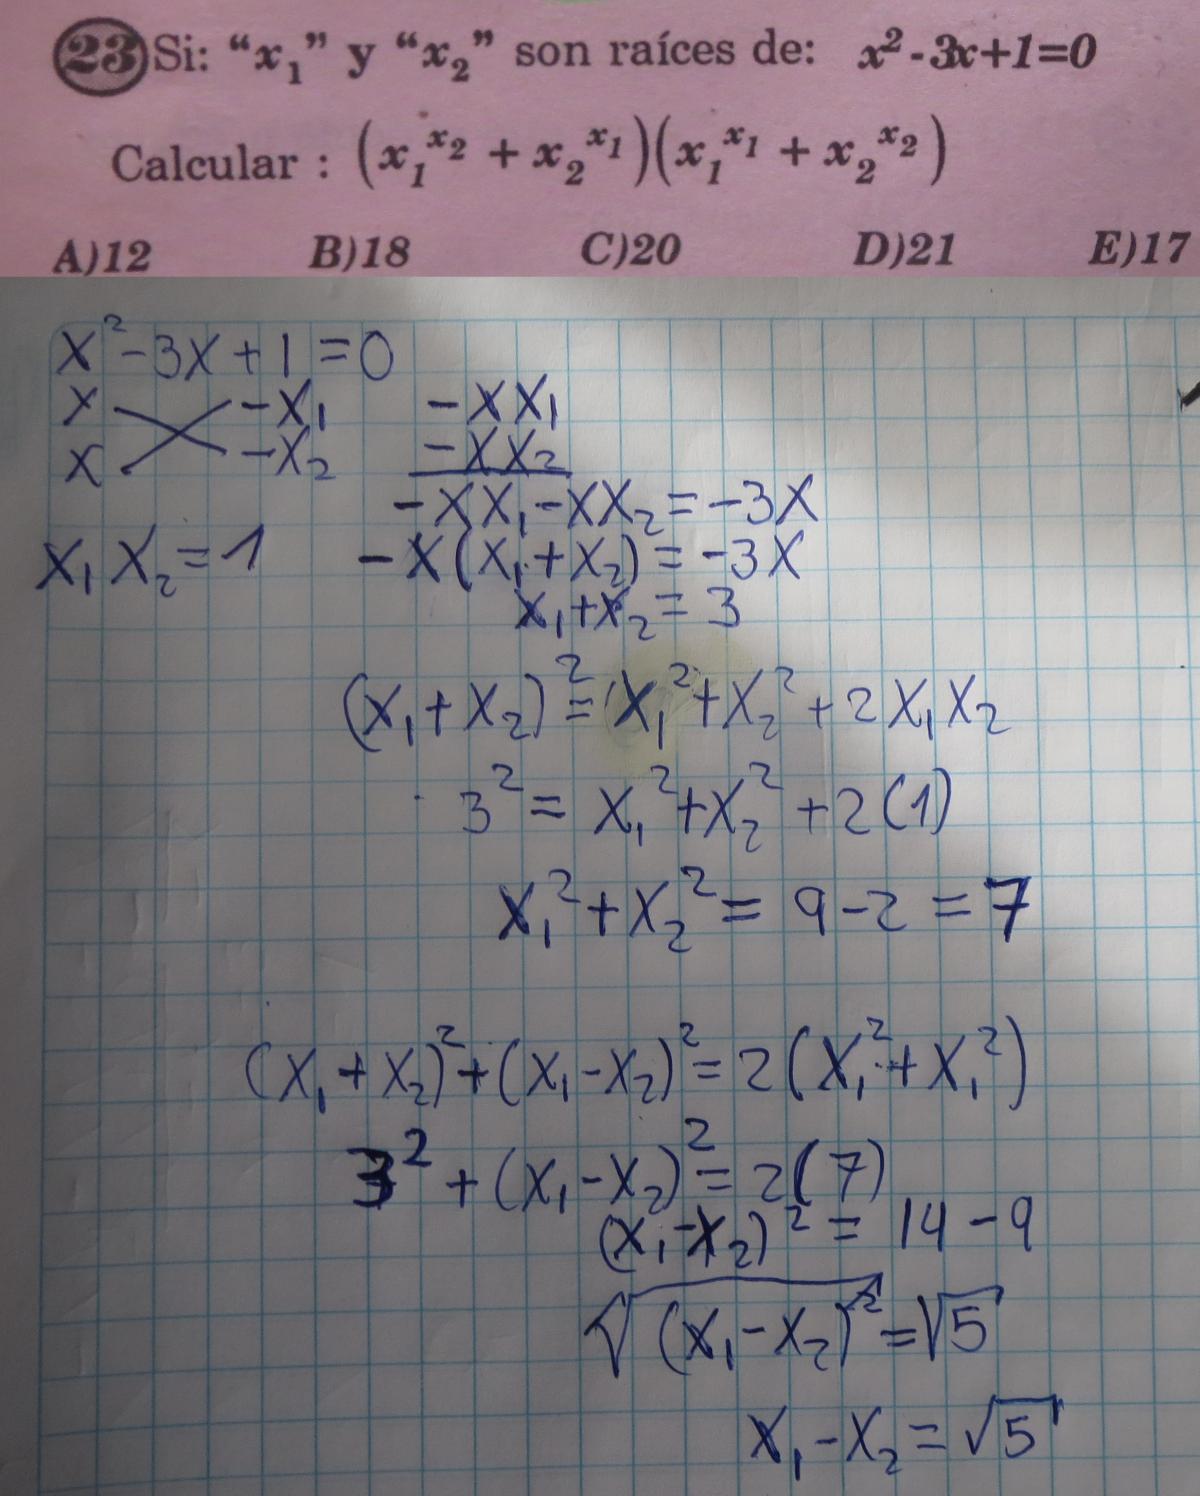 23 Si: “x₁” y “x₂” son raíces de: x²-3x+1=0
Calcular : (x₁^x₂ + x₂^x₁)(x₁^x₁ + x₂^x₂)
A)12 B)18 C)20 D)21 E)17
x²-3x+1=0
x -x₁ -xx₁
x -x₂ -xx₂
-xx₁-xx₂=-3x
x₁x₂=1 -x(x₁+x₂)=-3x
x₁+x₂=3
(x₁+x₂)²=x₁²+x₂²+2x₁x₂
3²=x₁²+x₂²+2(1)
x₁²+x₂²=9-2=7
(x₁+x₂)²+(x₁-x₂)²=2(x₁²+x₁²)
3²+(x₁-x₂)²=2(7)
(x₁-x₂)²=14-9
√(x₁-x₂)²=√5
x₁-x₂=√5